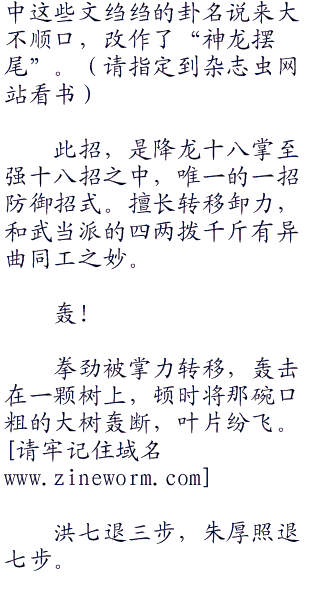 中这些文绉绉的卦名说来大
不顺口，改作了“神龙摆
尾”。（请指定到杂志虫网
站看书）
此招，是降龙十八掌至
强十八招之中，唯一的一招
防御招式。擅长转移卸力，
和武当派的四两拨千斤有异
曲同工之妙。
轰！
拳劲被掌力转移，轰击
在一颗树上，顿时将那碗口
粗的大树轰断，叶片纷飞。
[请牢记住域名
www.zineworm.com]
洪七退三步，朱厚照退
七步。